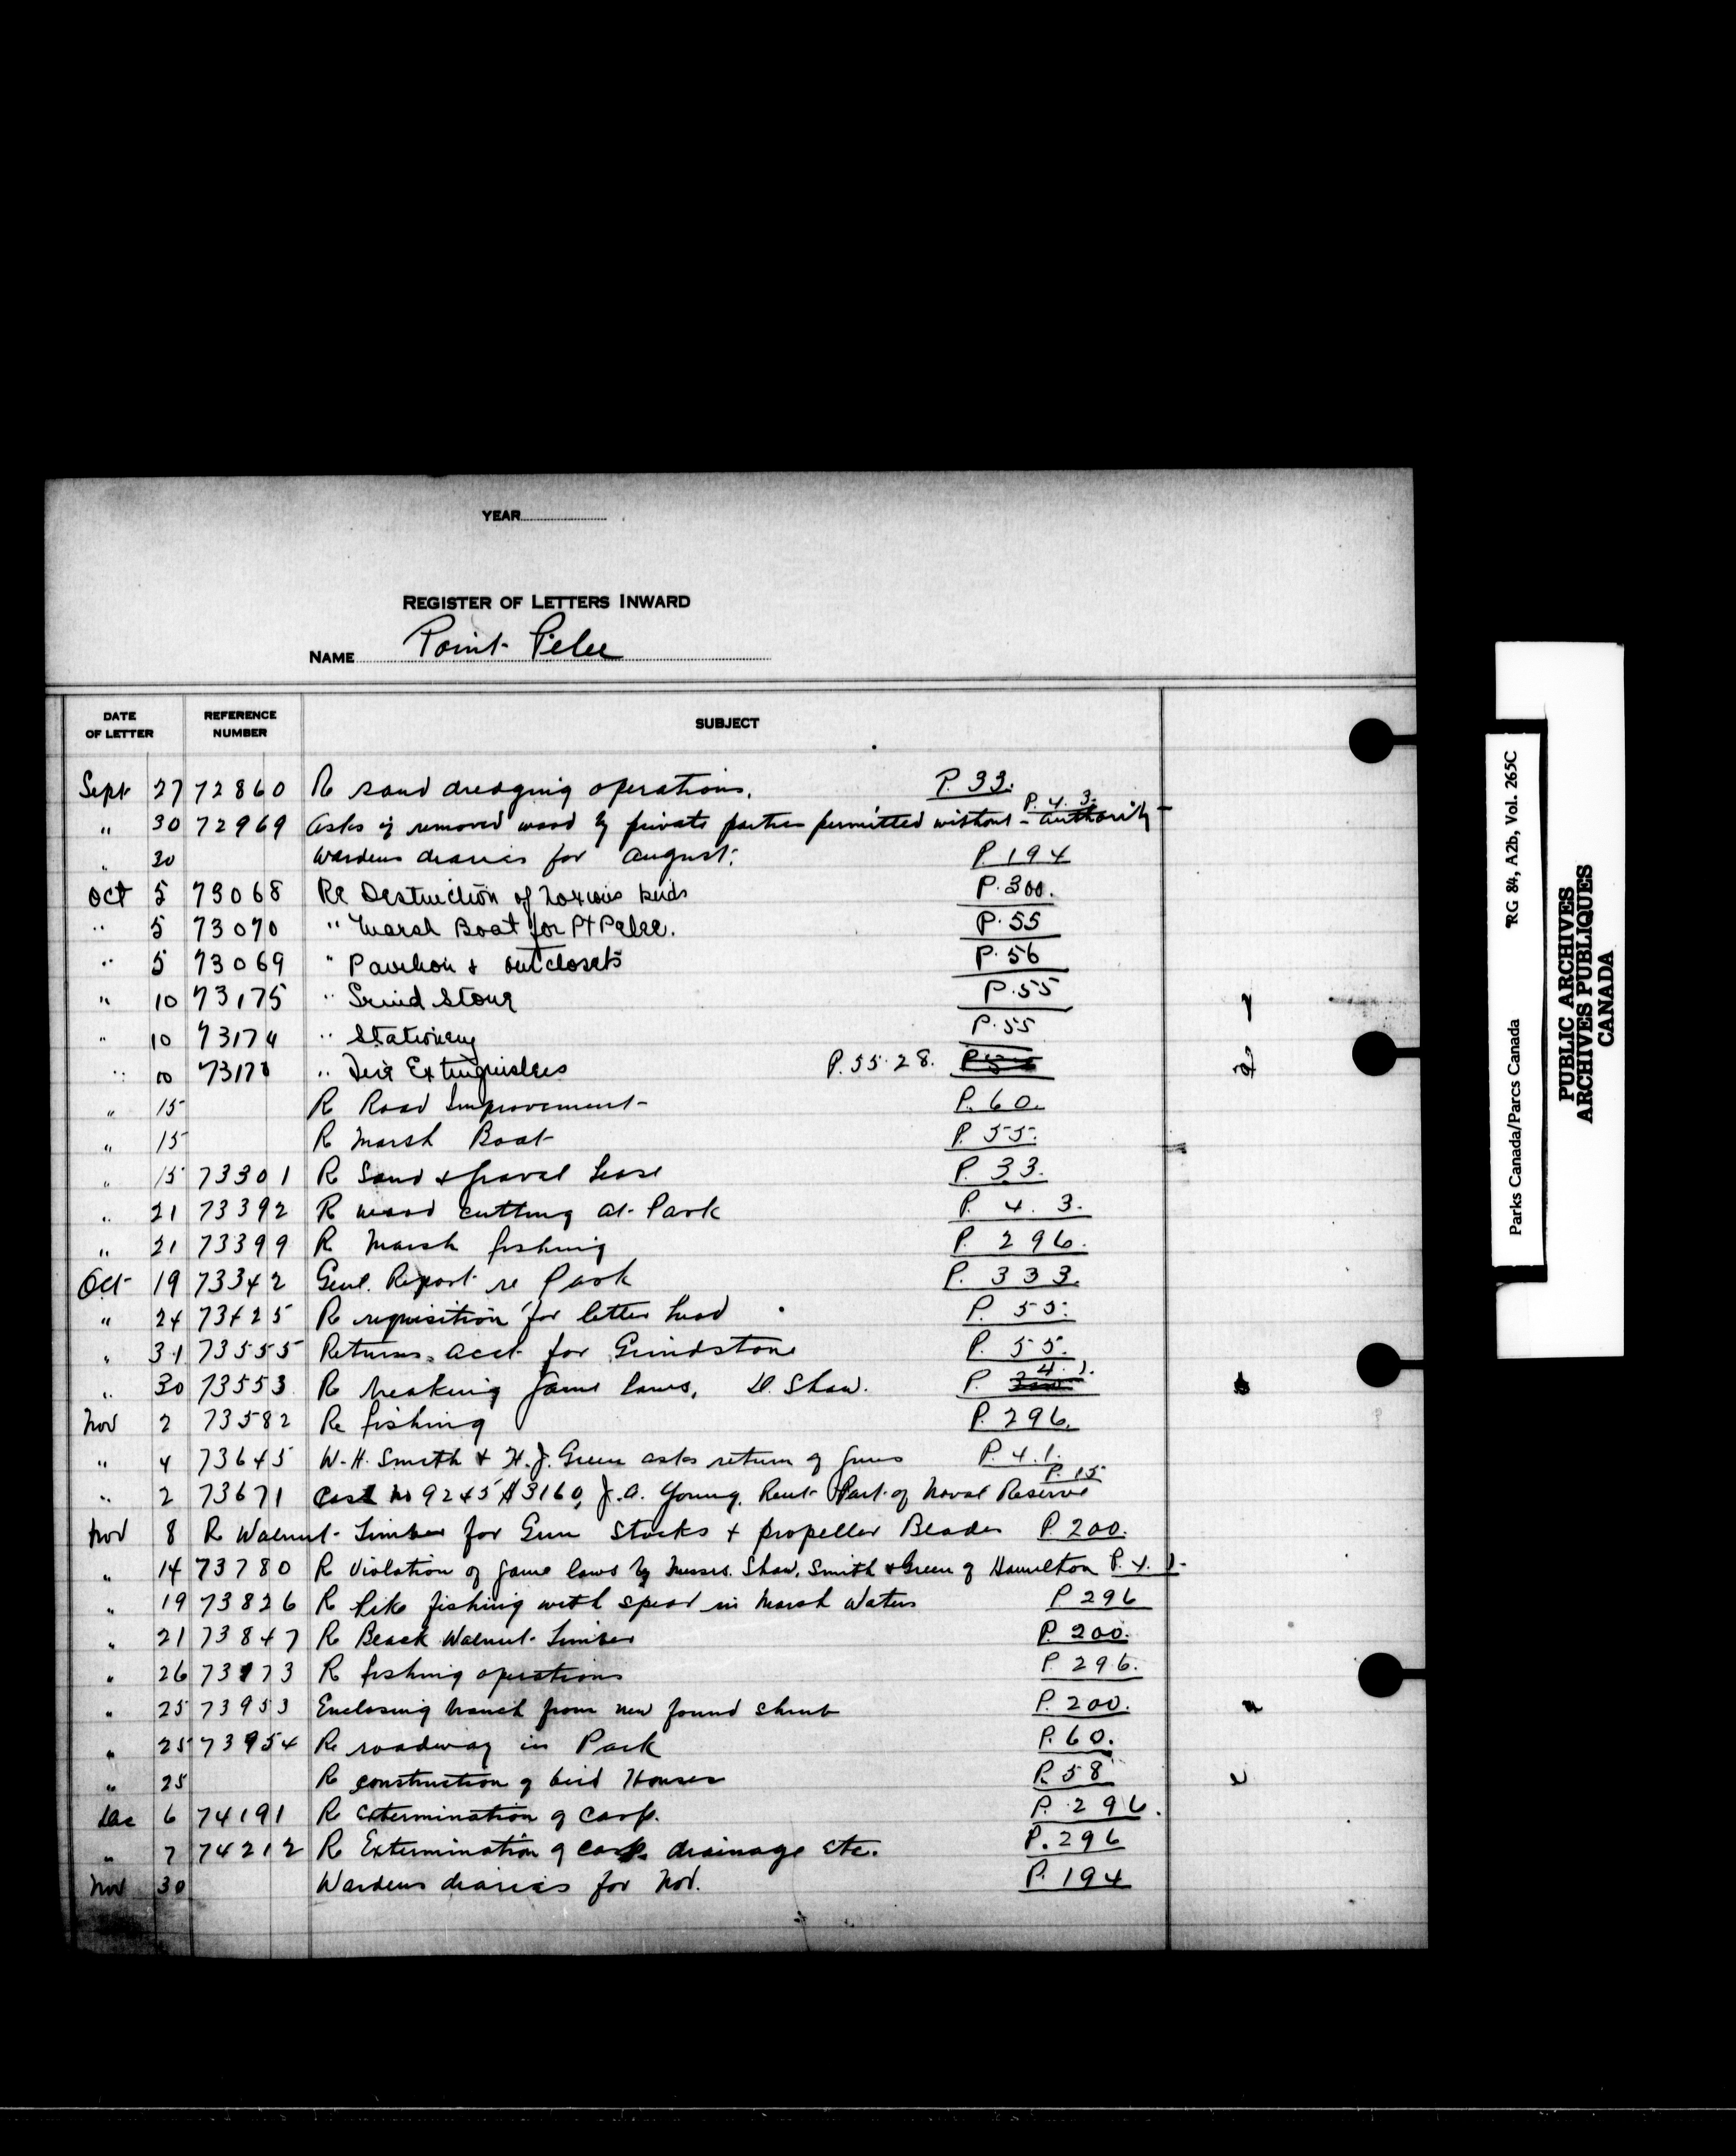 YEAR
REGISTER OF LETTERS INWARD
NAME Point Pelee
DATE OF LETTER REFERENCE NUMBER SUBJECT
Sept 27 72860 R sand dredging operations. P. 33.
" 30 72969 Asks if removed wood by private parties permitted without authority P. 4. 3.
" 30 Wardens diaries for August. P. 194
Oct 5 73068 Re Destruction of noxious birds P. 300.
" 5 73070 " Marsh Boat for Pt Pelee. P. 55
" 5 73069 " Pavilion & out closets P. 56
" 10 73175 " Grind Stone P. 55
" 10 73174 " Stationery P. 55
" 10 " Fire Extinguishers P. 55. 28.
" 15 R Road Improvement P. 60.
" 15 R Marsh Boat P. 55.
" 15 73301 R Sand & Gravel Lease P. 33.
" 21 73392 R wood cutting at Park P. 4. 3.
" 21 73399 R Marsh fishing P. 296.
Oct 19 73342 Genl. Report re Park P. 333.
" 24 73425 R requisition for letter head P. 55.
" 31 73555 Returns acct for Grindstone P. 55.
" 30 73553 R breaking Game laws, D. Shaw. P. 4. 1.
Nov 2 73582 Re fishing P. 296.
" 4 73645 W. H. Smith & H. J. Green asks return of Guns P. 4. 1.
" 2 73671 Case No 9245 #3160, J. A. Young, Rent Part of Naval Reserve P. 15
Nov 8 R Walnut Timber for Gun Stocks & propeller Blades P. 200.
" 14 73780 R Violation of Game laws by Messrs. Shaw, Smith & Green of Hamilton P. 4. 1.
" 19 73826 R Pike fishing with spear in Marsh Waters P 296
" 21 73847 R Black Walnut Timber P. 200.
" 26 R fishing operations P. 296.
" 25 73953 Enclosing branch from new found shrub P. 200.
" 25 73954 Re roadway in Park P. 60.
" 25 R construction of bird Houses P. 58
Dec 6 74191 R Extermination of Carp. P. 296.
" 7 74212 R Extermination of carp. drainage etc. P. 296
Nov 30 Wardens diaries for Nov. P. 194
Parks Canada/Parcs Canada RG 84, A2b, Vol. 265C
PUBLIC ARCHIVES
ARCHIVES PUBLIQUES
CANADA